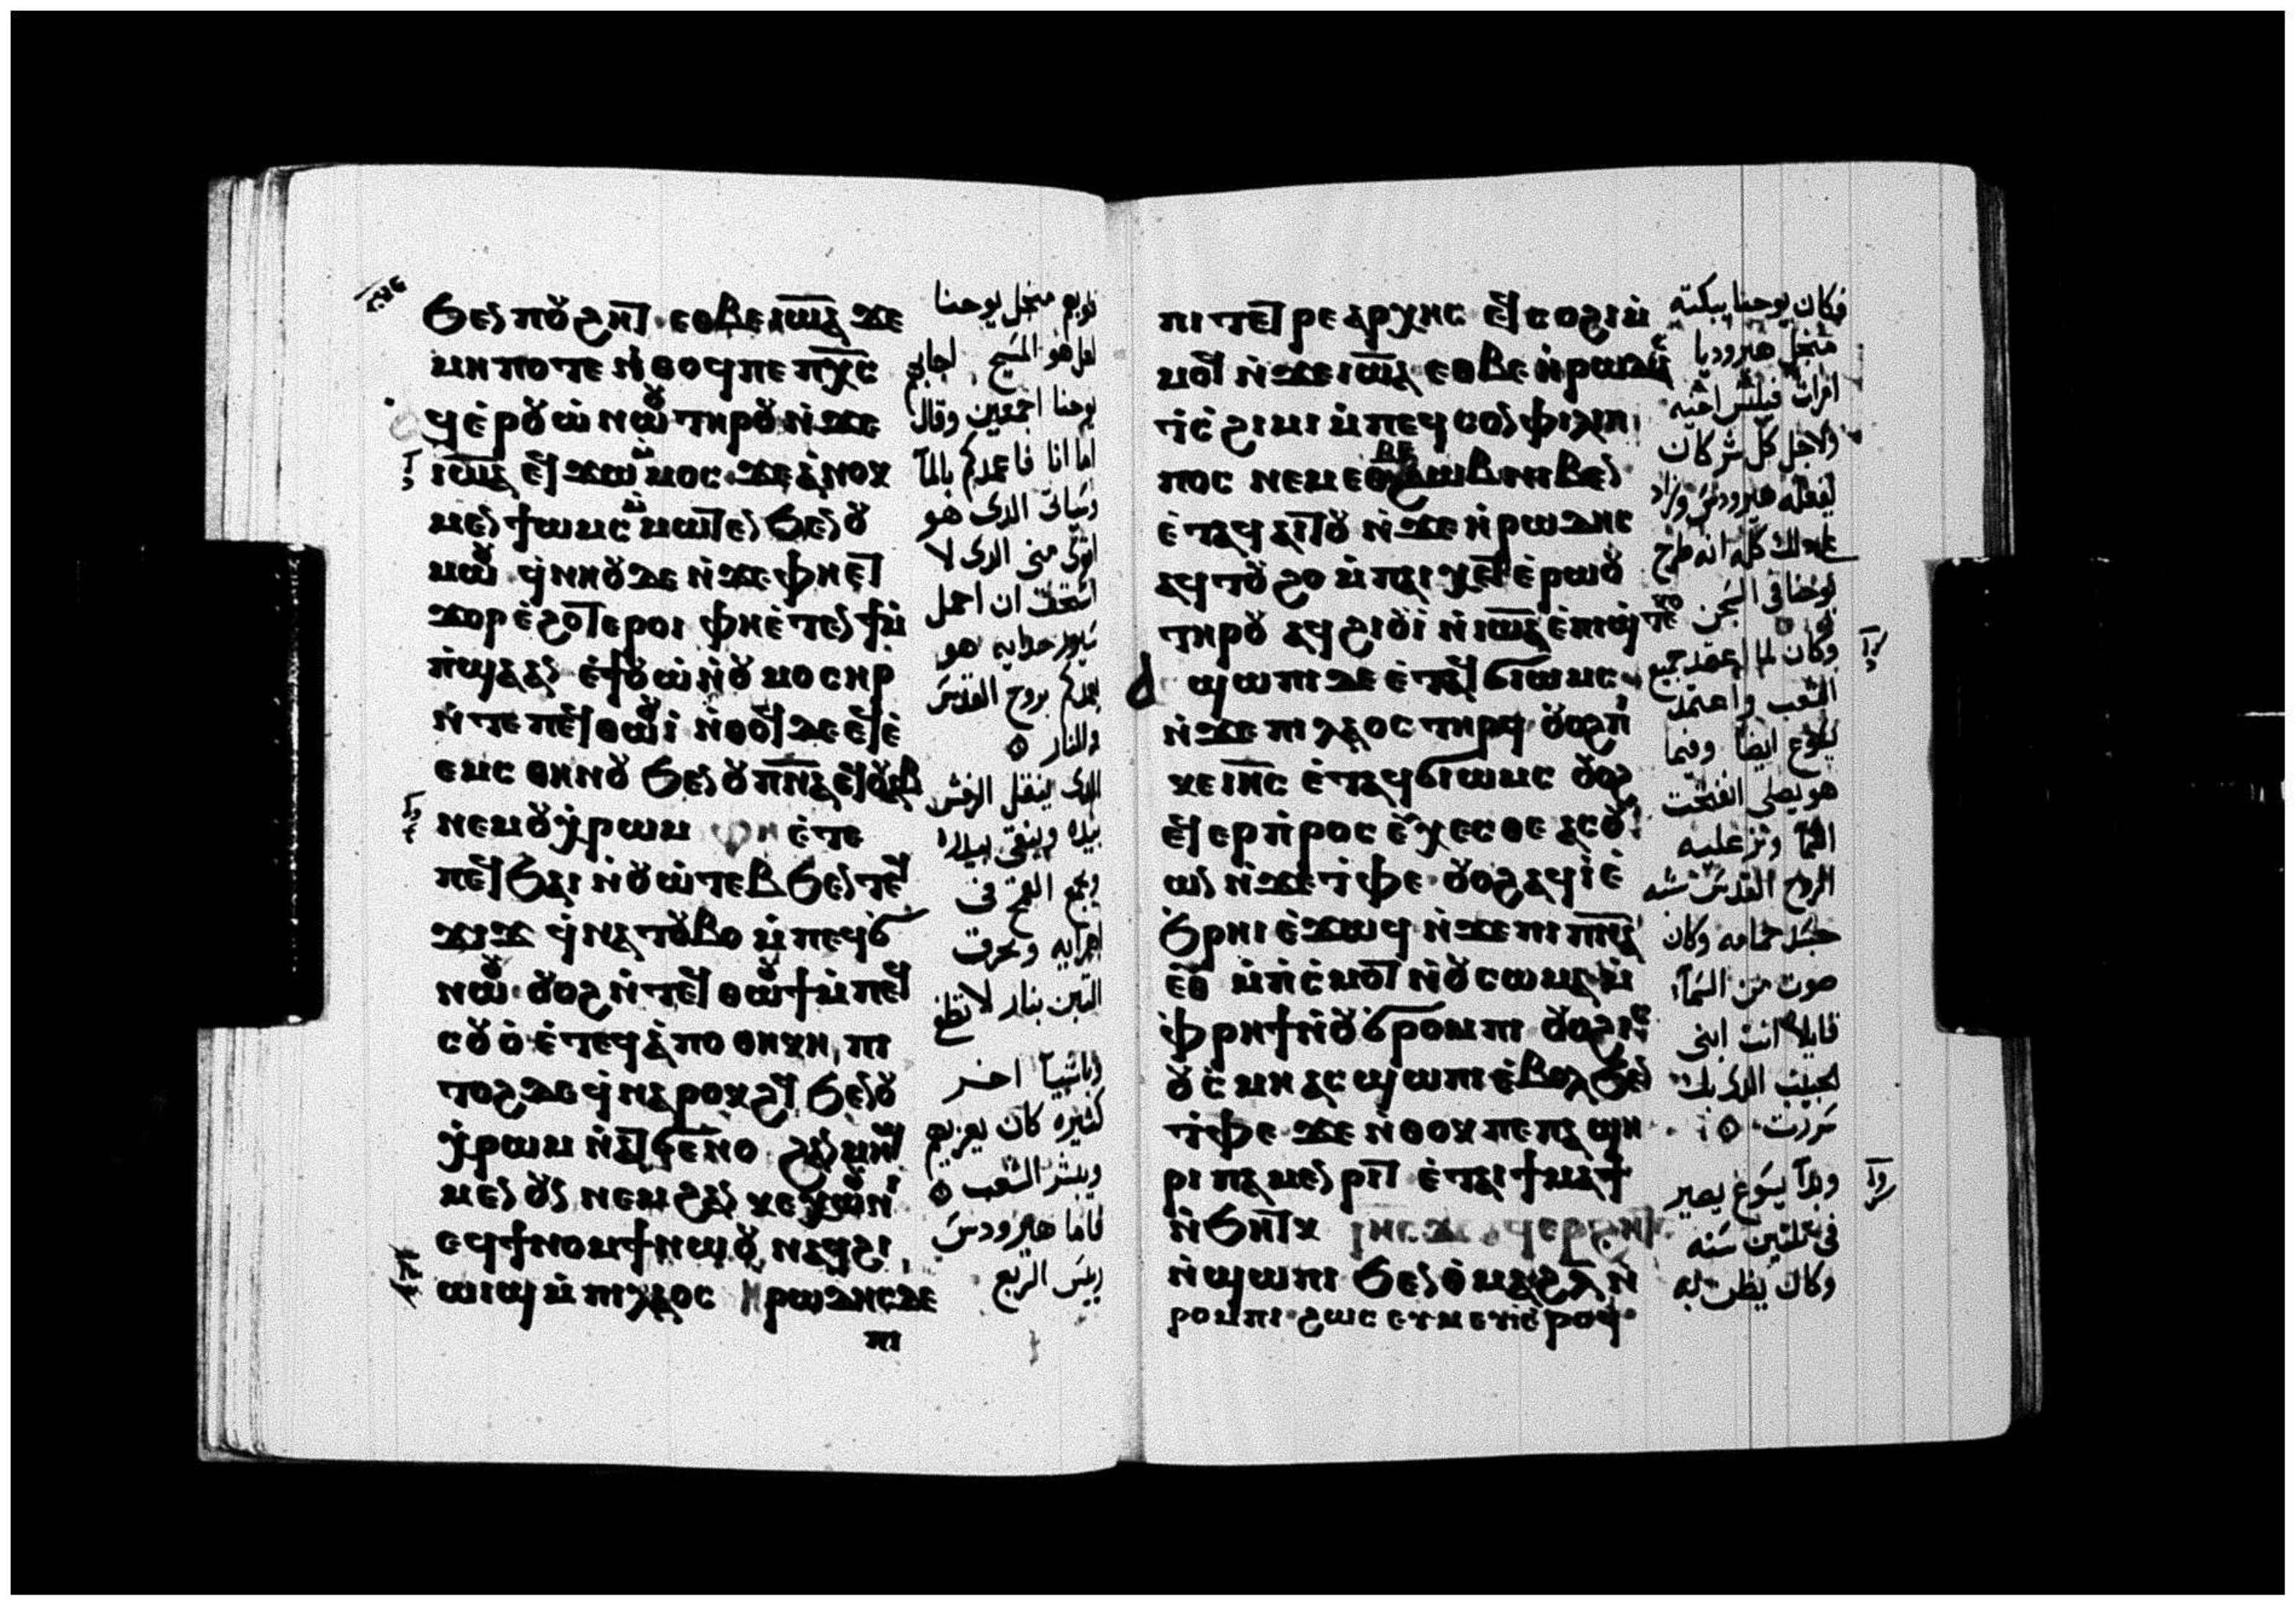 ϧⲉⲛ ⲡⲟⲩϩⲏⲧ ⲉⲑⲃⲉ ⲓⲱⲁ ϫⲉ
ⲙⲏⲡⲟⲧⲉ ⲛ̇ⲑⲟϥ ⲡⲉ ⲡⲭⲥ
ϥⲉ̇ⲣⲟⲩⲱ̇ ⲛⲱⲟⲩ ⲧⲏⲣⲟⲩ ⲛ̇ϫⲉ
ⲓⲱⲁ ⲉϥϫⲱ ⲙ̇ⲙⲟⲥ ϫⲉ ⲁ̇ⲛⲟⲕ
ⲙⲉⲛ ϯⲱⲙⲥ ⲙ̇ⲙⲱⲧⲉⲛ ϧⲉⲛ ⲟⲩ
ⲙⲱⲟⲩ ϥ̇ⲛⲏⲟⲩ ⲇⲉ ⲛ̇ϫⲉ ⲫⲏⲉⲧ
ϫⲟⲣ ⲉ̇ϩⲟⲧⲉⲣⲟⲓ ⲫⲏⲉ̇ⲧⲉⲛϯⲙ̇
ⲡ̇ϣⲁ ⲁⲛ ⲉ̇ϯⲟⲩⲱ̇ ⲛ̇ⲟⲩⲙⲟⲥⲏⲣ
ⲛ̇ⲧⲉ ⲡⲉϥⲑⲱⲟⲩⲓ̇ ⲛ̇ⲑⲟϥ ⲇⲉ ⲉϥⲉ̇
ⲉⲙⲥ ⲑⲏⲛⲟⲩ ϧⲉⲛ ⲟⲩⲡⲛⲁ ⲉϥⲟⲩⲁⲃ
ⲛⲉⲙ ⲟⲩⲭ̇ⲣⲱⲙ ⲫⲏ ⲉ̇ⲧⲉ
ⲡⲉϥϧⲁⲓ ⲛ̇ⲟⲩⲱ̇ⲧⲉⲃ ϧⲉⲛ ⲧⲉϥ
ϫⲓϫ ϥ̇ⲛⲁⲧⲟⲩⲃⲟ ⲙ̇ⲡⲉϥϭ
ⲛⲱⲟⲩ ⲟⲩⲟϩ ⲛ̇ⲧⲉϥⲑⲱⲟⲩϯ ⲙ̇ⲡⲉϥ
ⲥⲟⲩⲟ̇ ⲉ̇ⲧⲉϥⲁ̇ⲡⲟⲑⲏⲕⲏ ⲡⲓ
ⲧⲟϩ ⲇⲉ ϥ̇ⲛⲁⲣⲟⲕϩϥ ϧⲉⲛ ⲟⲩ
ⲭ̇ⲣⲱⲙ ⲛ̇ⲁⲧϭⲉⲛⲟ ϩⲁⲛⲙⲏϣ
ⲙⲉⲛ ⲟⲩⲛ ⲛⲉⲙ ϩⲁⲛ ⲕⲉⲭⲱⲟⲩⲛⲓ
ⲉϥϯⲛⲟⲙϯ ⲛⲱⲟⲩ ⲛⲁϥϩⲓ
ⲱⲓϣ ⲙ̇ⲡⲓⲗⲁⲟⲥ ⲏⲣⲱⲇⲏⲥ ⲇⲉ
ⲡⲓ
قلوبهم من اجل يوحنا
لعل هو المسيح اجابهم
يوحنا اجمعين وقال
اما انا فاعمدكم بالمآ
وسياتى الدى هو
اقوى منى الدى لا
استحق ان احل
سيور حدايه هو
يعمدكم بروح القدس
والنار
الدى ينقل الرفش
بيده وينقى بيدره
ويجمع القمح فى
اهرايه ويحرق
التبن بنار لا تطفى
واشيآ اخر
كثيره كان يعزيهم
ويبشر الشعب
فاما هيرودس
رييس الربع
ⲡⲓⲧⲉⲧⲣⲉⲁⲣⲭⲏⲥ ⲉϥⲥⲟϩⲓ ⲙ̇
ⲙⲟϥ ⲛ̇ϫⲉ ⲓⲱⲁ ⲉⲑⲃⲉ ⲛ̇ⲣⲱⲇⲓ
ⲧ̇ⲥ̇ϩⲓⲙⲓ ⲙ̇ⲡⲉϥⲥⲟⲛ ⲫⲓⲗⲓⲡ
ⲡⲟⲥ ⲛⲉⲙ ⲉⲑⲃⲉ ϩⲱⲃ ⲛⲓⲃⲉⲛ
ⲉ̇ⲧⲁϥⲁⲓⲧⲟⲩ ⲛ̇ϫⲉ ⲛ̇ⲣⲱⲇⲏⲥ
ⲁϥⲧⲟⲩϩⲟ ⲙ̇ⲡⲁⲓⲭⲉⲧ ⲉ̇ⲣⲱⲟⲩ
ⲧⲏⲣⲟⲩ ⲁϥϩⲓⲟⲩⲓ̇ ⲛ̇ⲓⲱⲁ ⲉ̇ⲡⲓϣ̇ⲧⲉⲕⲟ
ϣⲱⲡⲓ ⲇⲉ ⲉ̇ⲧⲁϥϭⲓⲱⲙⲥ
ⲛ̇ϫⲉ ⲡⲓⲗⲁⲟⲥ ⲧⲏⲣϥ ⲟⲩⲟϩ ⲡ̇
ⲕⲉ ⲓⲏⲥ ⲉ̇ⲧⲁϥϭⲓⲱⲙⲥ ⲟⲩⲟϩ
ⲉϥⲉⲣⲡ̇ⲣⲟⲥⲉⲩⲭⲉⲥⲑⲉ ⲁⲥⲟⲩ
ⲱⲛ ⲛ̇ϫⲉ ⲧ̇ⲫⲉ ⲟⲩⲟϩ ⲁϥⲓ̇ ⲉ̇
ϧ̇ⲣⲏⲓ ⲉ̇ϫⲱϥ ⲛ̇ϫⲉ ⲡⲓⲡⲛⲁ
ⲉⲑ ⲙ̇ⲡ̇ⲥ̇ⲙⲟⲧ ⲛ̇ⲟⲩⲥⲱⲙⲁ ⲙ̇
ⲫ̇ⲣⲏϯ ⲛ̇ⲟⲩϭⲣⲟⲙⲡⲓ ⲟⲩⲟϩ ⲓⲥ
ⲟⲩⲥ̇ⲙⲏ ⲁⲥϣⲱⲡⲓ ⲉ̇ⲃⲟⲗ ϧⲉⲛ
ⲧ̇ⲫⲉ ϫⲉ ⲛ̇ⲑⲟⲕ ⲡⲉ ⲡⲁϣⲏ
ⲣⲓ ⲡⲁⲙⲉⲛⲣⲓⲧ ⲉ̇ⲧⲁⲓϯⲙⲁϯ
ⲛ̇ϧⲏⲧⲕ ⲓⲏⲥ ⲇⲉ ⲁϥⲉⲣϩⲏⲧⲥ
ⲛ̇ϣⲱⲡⲓ ϧⲉⲛ ⲑ̇ⲙⲁϩ ⲗ̅ ⲛ̇
ⲣⲟⲙⲡⲓ ϩⲱⲥ ⲉⲩⲙⲉⲩⲓ ⲉ̇ⲣⲟϥ
فكان يوحنا يبكته
من اجل هيروديا
امرات فيلبس اخيه
ولاجل كل شر كان
يفعله هيرودس وزاد
على دلك كله انه طرح
يوحنا فى السجن
وكان لما اعتمد جميع
الشعب واعتمد
يسوع ايضا وفيما
هو يصلى انفتحت
السمآ ونزل عليه
الروح القدس شبه
جسد حمامه وكان
صوت من السمآ
قايلا انت ابنى
الحبيب الدى بك
سررت
وبدآ يسوع يصير
فى ثلثين سنه
وكان يظن به